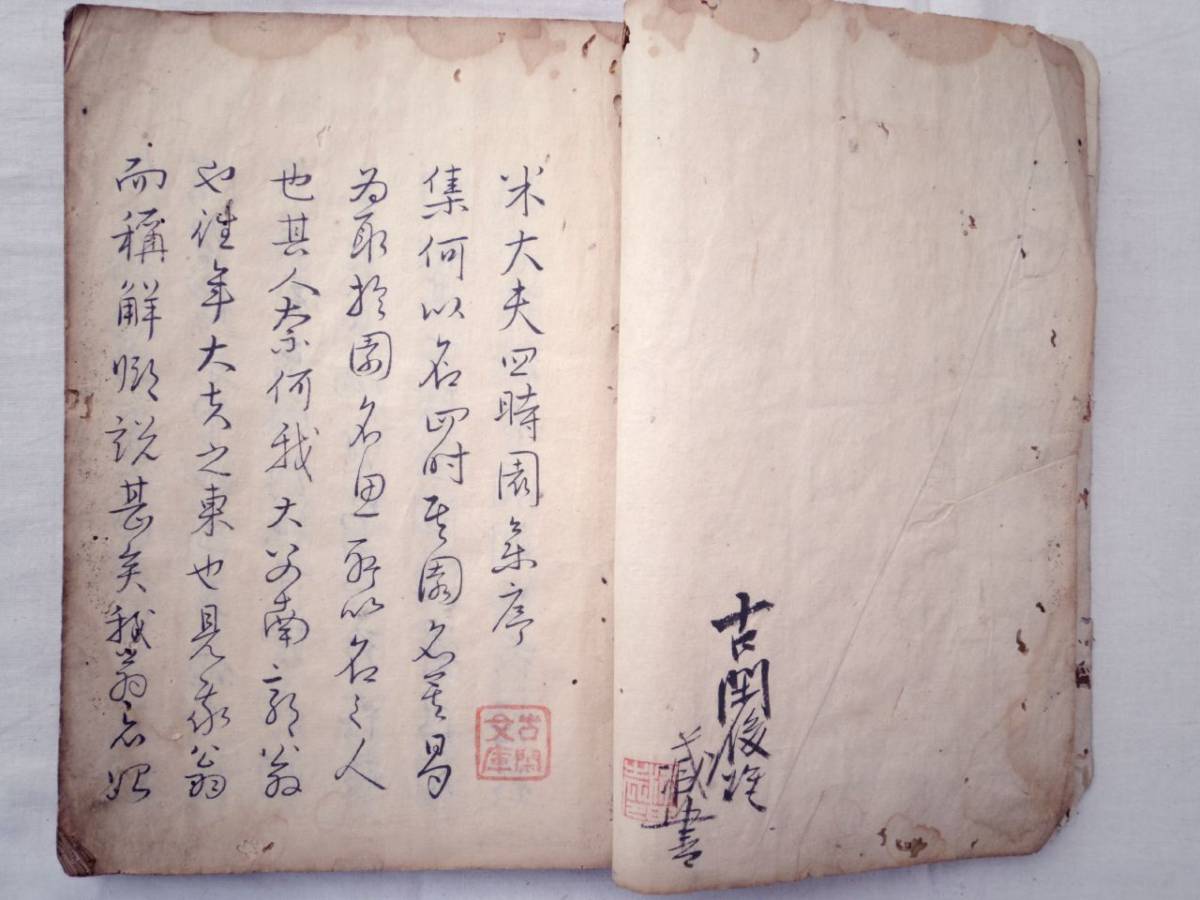 古閑俊雄
蔵書
米大夫四時園集序
集何以名四时其園名曷
為取於園名思所以名之人
也其人奈何我大父南郭翁
也往年大夫之東也見我翁
而稱解頤説甚矣我翁亦
古閑
文庫